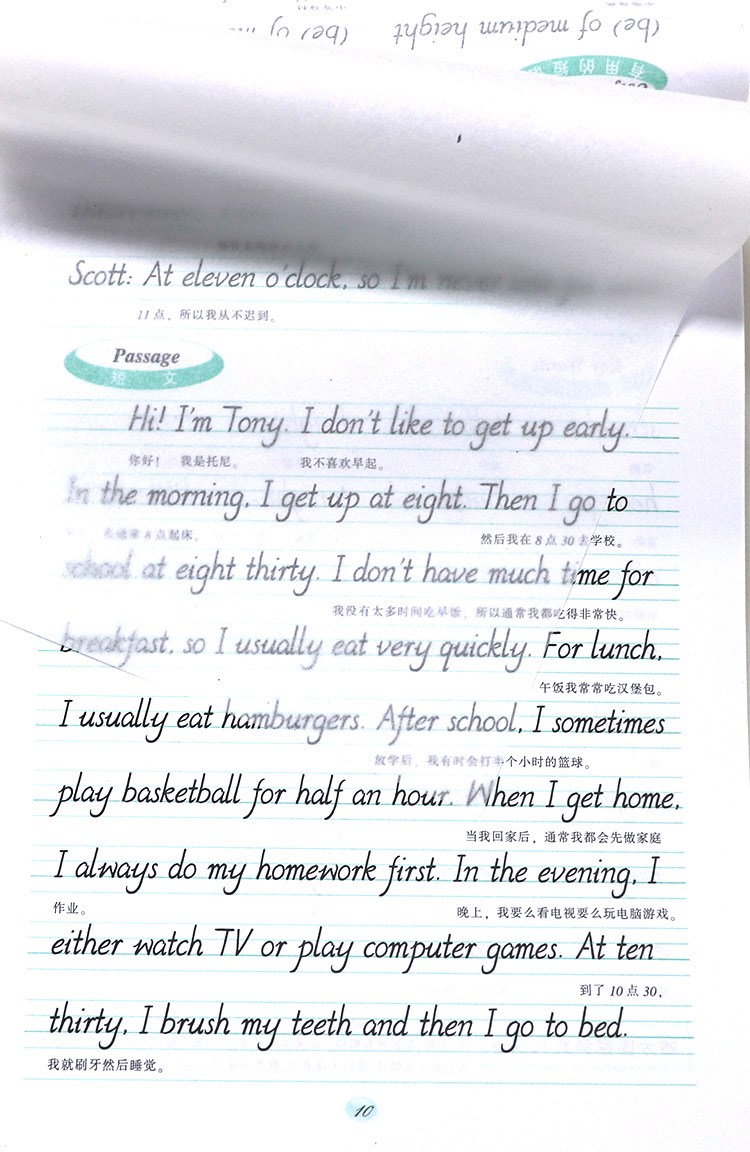 (be) of medium height (be) of
有用的短
Scott: At eleven o'clock, so I'm never
11点，所以我从不迟到。
Passage
短 文
Hi! I'm Tony. I don't like to get up early.
你好！ 我是托尼。 我不喜欢早起。
In the morning, I get up at eight. Then I go to
我通常8点起床。 然后我在8点30去学校。
school at eight thirty. I don't have much time for
我没有太多时间吃早饭，所以通常我都吃得非常快。
breakfast, so I usually eat very quickly. For lunch,
午饭我常常吃汉堡包。
I usually eat hamburgers. After school, I sometimes
放学后，我有时会打半个小时的篮球。
play basketball for half an hour. When I get home,
当我回家后，通常我都会先做家庭
I always do my homework first. In the evening, I
作业。 晚上，我要么看电视要么玩电脑游戏。
either watch TV or play computer games. At ten
到了10点30，
thirty, I brush my teeth and then I go to bed.
我就刷牙然后睡觉。
10